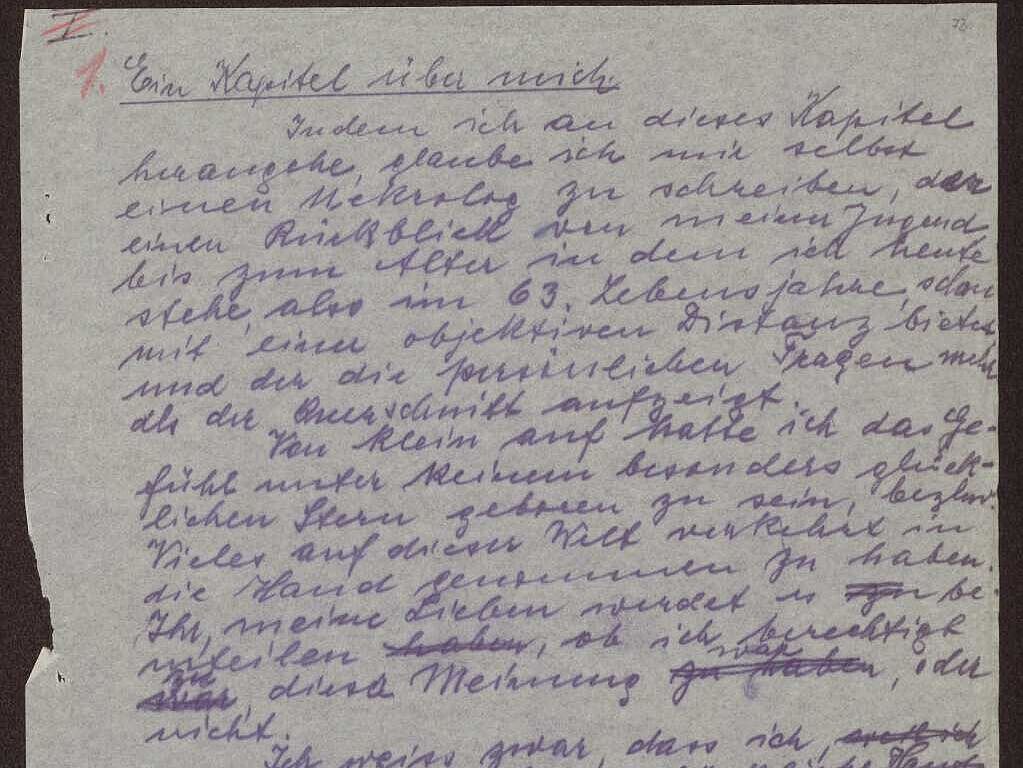 I.
73.
1. Ein Kapitel über mich.
Indem ich an dieses Kapitel
herangehe, glaube ich mir selbst
einen Nekrolog zu schreiben, der
einen Rückblick von meiner Jugend
bis zum Alter in dem ich heute
stehe, also im 63. Lebensjahre, schon
mit einer objektiven Distanz bietet,
und der die persönlichen Fragen mehr
als der Querschnitt aufzeigt.
Von klein auf hatte ich das Ge-
fühl unter keinem besonders glück-
lichen Stern geboren zu sein, bezhw.
Vieles auf dieser Welt verkehrt in
die Hand genommen zu haben.
Ihr, meine Lieben werdet es zu be-
urteilen haben, ob ich berechtigt
zu war
war, diese Meinung zu haben, oder
nicht.
Ich weiss zwar, dass ich,